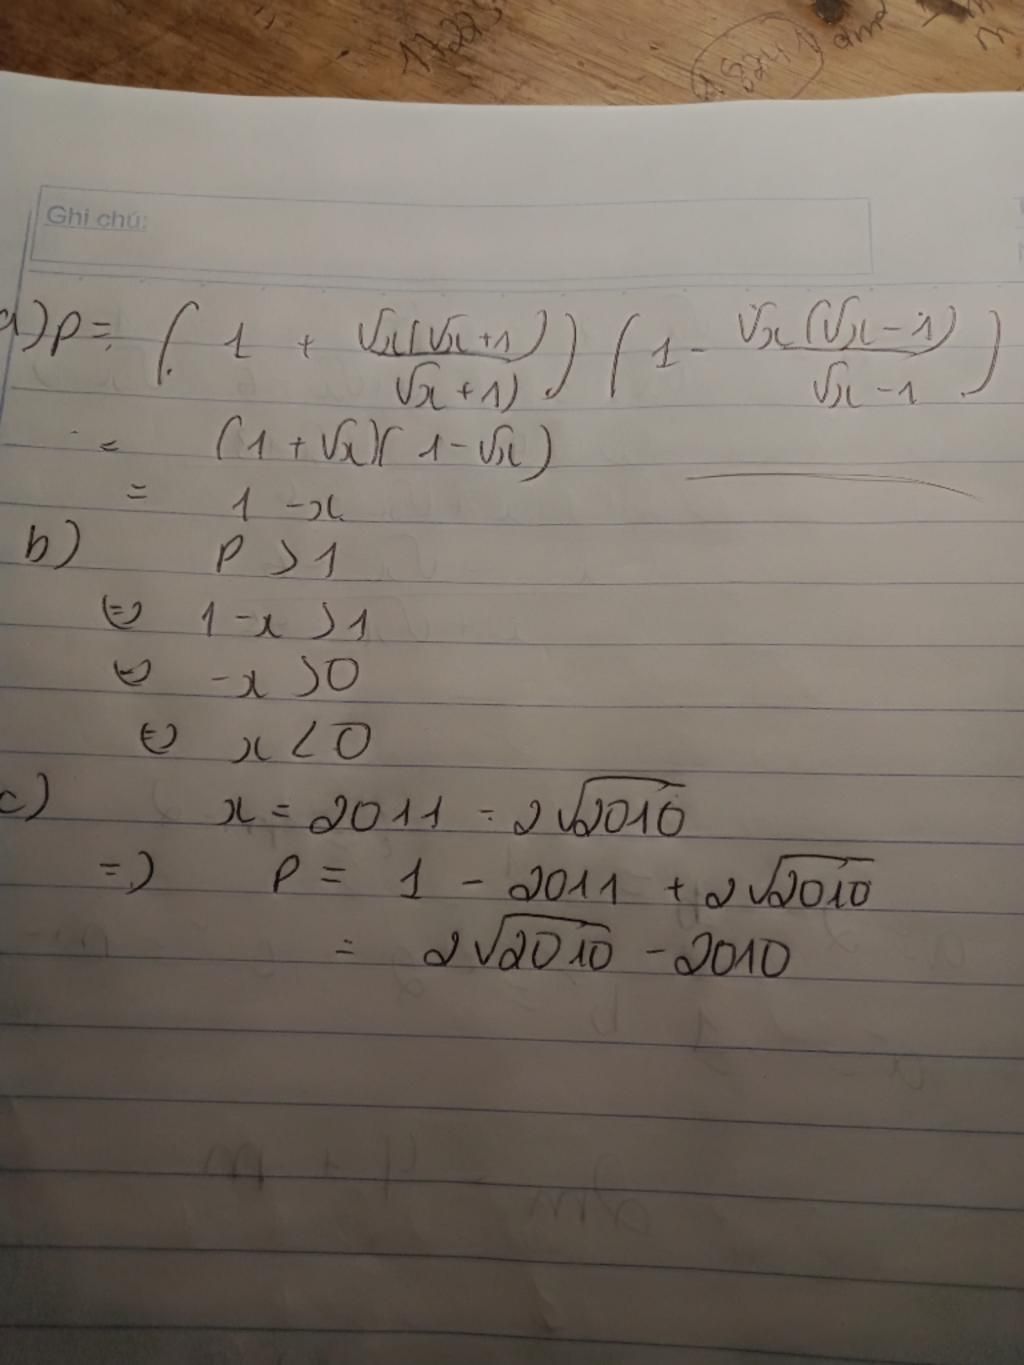 17225
18241
Ghi chú:
a) P = ( 1 + √x(√x+1) / √x+1) ) ( 1 - √x(√x-1) / √x-1 )
= (1+√x)(1-√x)
= 1 - x
b) P > 1
⇔ 1 - x > 1
⇔ -x > 0
⇔ x < 0
c) x = 2011 - 2√2010
=) P = 1 - 2011 + 2√2010
= 2√2010 - 2010